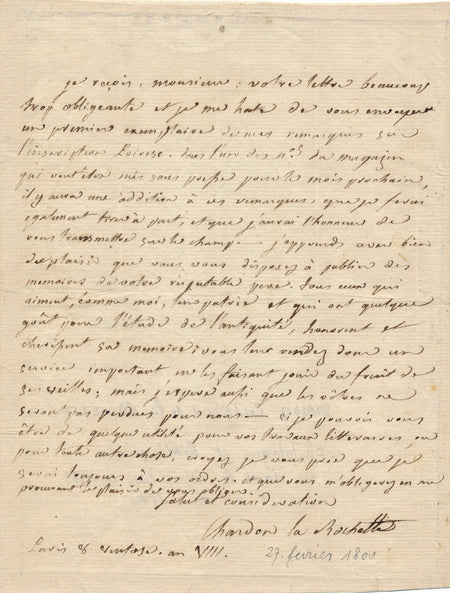 je reçois, monsieur, votre lettre beaucoup
trop obligeante et je me hate de vous envoyer
un premier exemplaire de mes remarques sur
l'inscription. dans l'un des nos du magazin
qui vont être mis sous presse pour le mois prochain,
il y aura une addition à ces remarques, que je ferai
egalement tirer à part, et que j'aurai l'honneur de
vous transmettre sur le champ — j'apprends avec bien
du plaisir que vous vous disposez à publier des
memoires de votre respectable pere. tous ceux qui
aiment, comme moi, leur patrie et qui ont quelque
goût pour l'étude de l'antiquité, honorent et
cherissent sa memoire; vous leur rendez donc un
service important en les faisant jouir du fruit de
ses veilles; mais j'espere aussi que les vôtres ne
seront pas perdues pour nous — si je pouvois vous
être de quelque utilité pour vos travaux litteraires, ou
pour toute autre chose, croyez je vous prie que je
serai toujours à vos ordres, et que vous m'obligerez en me
procurant le plaisir de vous obliger.
salut et consideration
Chardon la Rochette
Paris 8 ventose. an VIII.
27. fevrier 1800